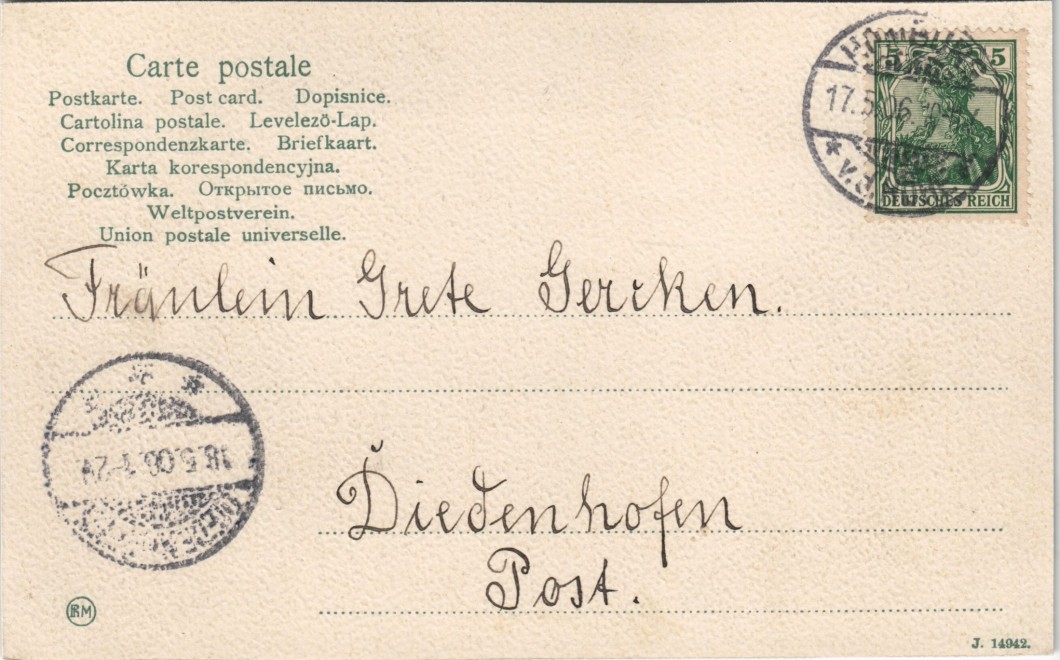 Carte postale
Postkarte. Post card. Dopisnice.
Cartolina postale. Levelezö-Lap.
Correspondenzkarte. Briefkaart.
Karta korespondencyjna.
Pocztówka. Открытое письмо.
Weltpostverein.
Union postale universelle.
17.5.06
5 5
DEUTSCHES REICH
Fräulein Grete Gercken.
18.5.06
Diedenhofen
Post.
RM
J. 14942.